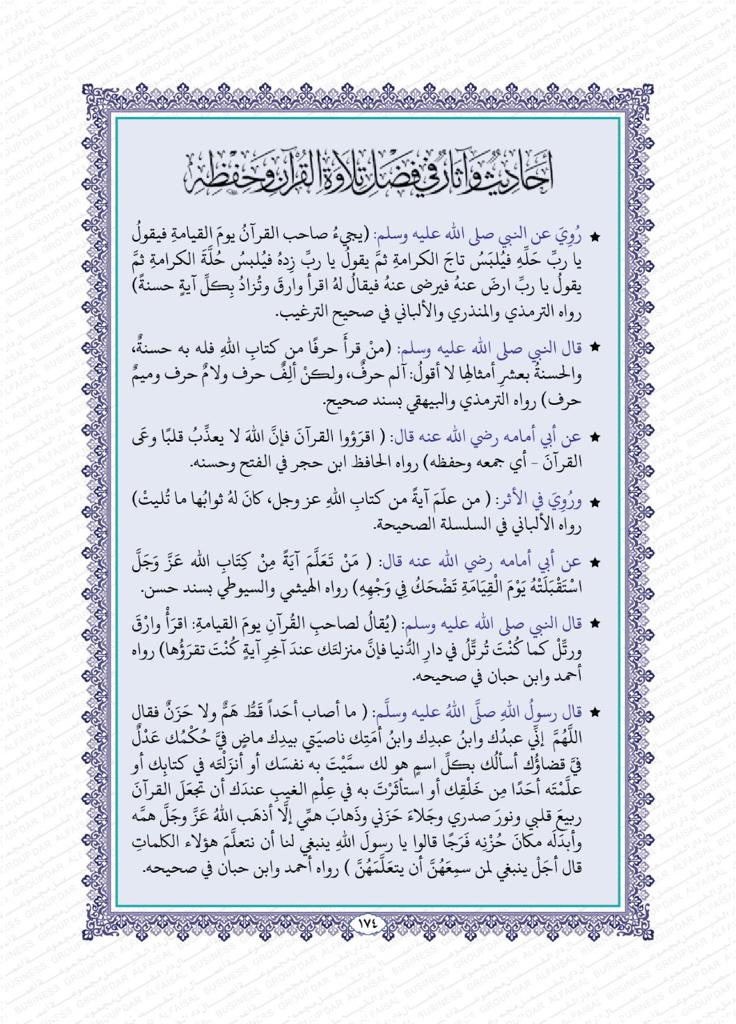 أَحَادِيثُ وَآثَارٌ فِي فَضْلِ تِلَاوَةِ الْقُرْآنِ وَحِفْظِهِ
★ رُوِيَ عن النبي صلى الله عليه وسلم: (يجيءُ صاحب القرآنُ يومَ القيامةِ فيقولُ
يا ربِّ حَلِّهِ فيُلبَسُ تاجَ الكرامةِ ثمَّ يقولُ يا ربِّ زِدهُ فيُلبسُ حُلَّةَ الكرامةِ ثمَّ
يقولُ يا ربِّ ارضَ عنهُ فيرضى عنهُ فيقالُ لهُ اقرأ وارقَ وتُزادُ بِكلِّ آيةٍ حسنةً)
رواه الترمذي والمنذري والألباني في صحيح الترغيب.
★ قال النبي صلى الله عليه وسلم: (منْ قرأَ حرفًا من كتابِ اللهِ فله به حسنةٌ،
والحسنةُ بعشرِ أمثالِها لا أقولُ: آلم حرفٌ، ولكنْ ألِفٌ حرف ولامٌ حرف وميمٌ
حرف) رواه الترمذي والبيهقي بسند صحيح.
★ عن أبي أمامه رضي الله عنه قال: ( اقرَؤوا القرآنَ فإنَّ اللهَ لا يعذِّبُ قلبًا وعَى
القرآنَ - أي جمعه وحفظه) رواه الحافظ ابن حجر في الفتح وحسنه.
★ ورُوِيَ في الأثر: ( من علّمَ آيةً من كتابِ اللهِ عز وجل، كانَ لهُ ثوابُها ما تُليتْ)
رواه الألباني في السلسلة الصحيحة.
★ عن أبي أمامه رضي الله عنه قال: ( مَنْ تَعَلَّمَ آيَةً مِنْ كِتَابِ الله عَزَّ وَجَلَّ
اسْتَقْبَلَتْهُ يَوْمَ الْقِيَامَةِ تَضْحَكُ فِي وَجْهِهِ) رواه الهيثمي والسيوطي بسند حسن.
★ قال النبي صلى الله عليه وسلم: (يُقالُ لصاحبِ القُرآنِ يومَ القيامةِ: اقرَأْ وارْقَ
ورتِّلْ كما كُنْتَ تُرتِّلُ في دارِ الدُّنيا فإنَّ منزلتَك عندَ آخِرِ آيةٍ كُنْتَ تقرَؤُها) رواه
أحمد وابن حبان في صحيحه.
★ قال رسولُ اللهِ صلَّى اللهُ عليه وسلَّم: ( ما أصاب أحَداً قَطُّ هَمٌّ ولا حَزَنٌ فقال
اللَّهُمَّ إنِّي عبدُك وابنُ عبدِك وابنُ أمَتِك ناصيَتي بيدِك ماضٍ فيَّ حُكْمُك عَدْلٌ
فيَّ قضاؤُك أسألُك بكلِّ اسمٍ هو لك سمَّيْتَ به نفسَك أو أنزَلْتَه في كتابِك أو
علَّمْتَه أحَدًا مِن خَلْقِك أو استأثَرْتَ به في عِلْمِ الغيبِ عندَك أن تجعَلَ القرآنَ
ربيعَ قلبي ونورَ صدري وجَلاءَ حَزَني وذَهابَ همِّي إلَّا أذهَب اللهُ عَزَّ وجَلَّ همَّه
وأبدَلَه مكانَ حُزْنِه فَرَجًا قالوا يا رسولَ اللهِ ينبغي لنا أن نتعلَّمَ هؤلاء الكلماتِ
قال أجَلْ ينبغي لمن سمِعَهُنَّ أن يتعَلَّمَهُنَّ ) رواه أحمد وابن حبان في صحيحه.
١٧٤